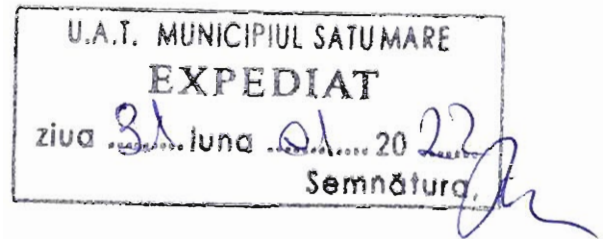 U.A.T. MUNICIPIUL SATU MARE
EXPEDIAT
ziua ..31.. luna ..01.... 20 22
Semnătura,